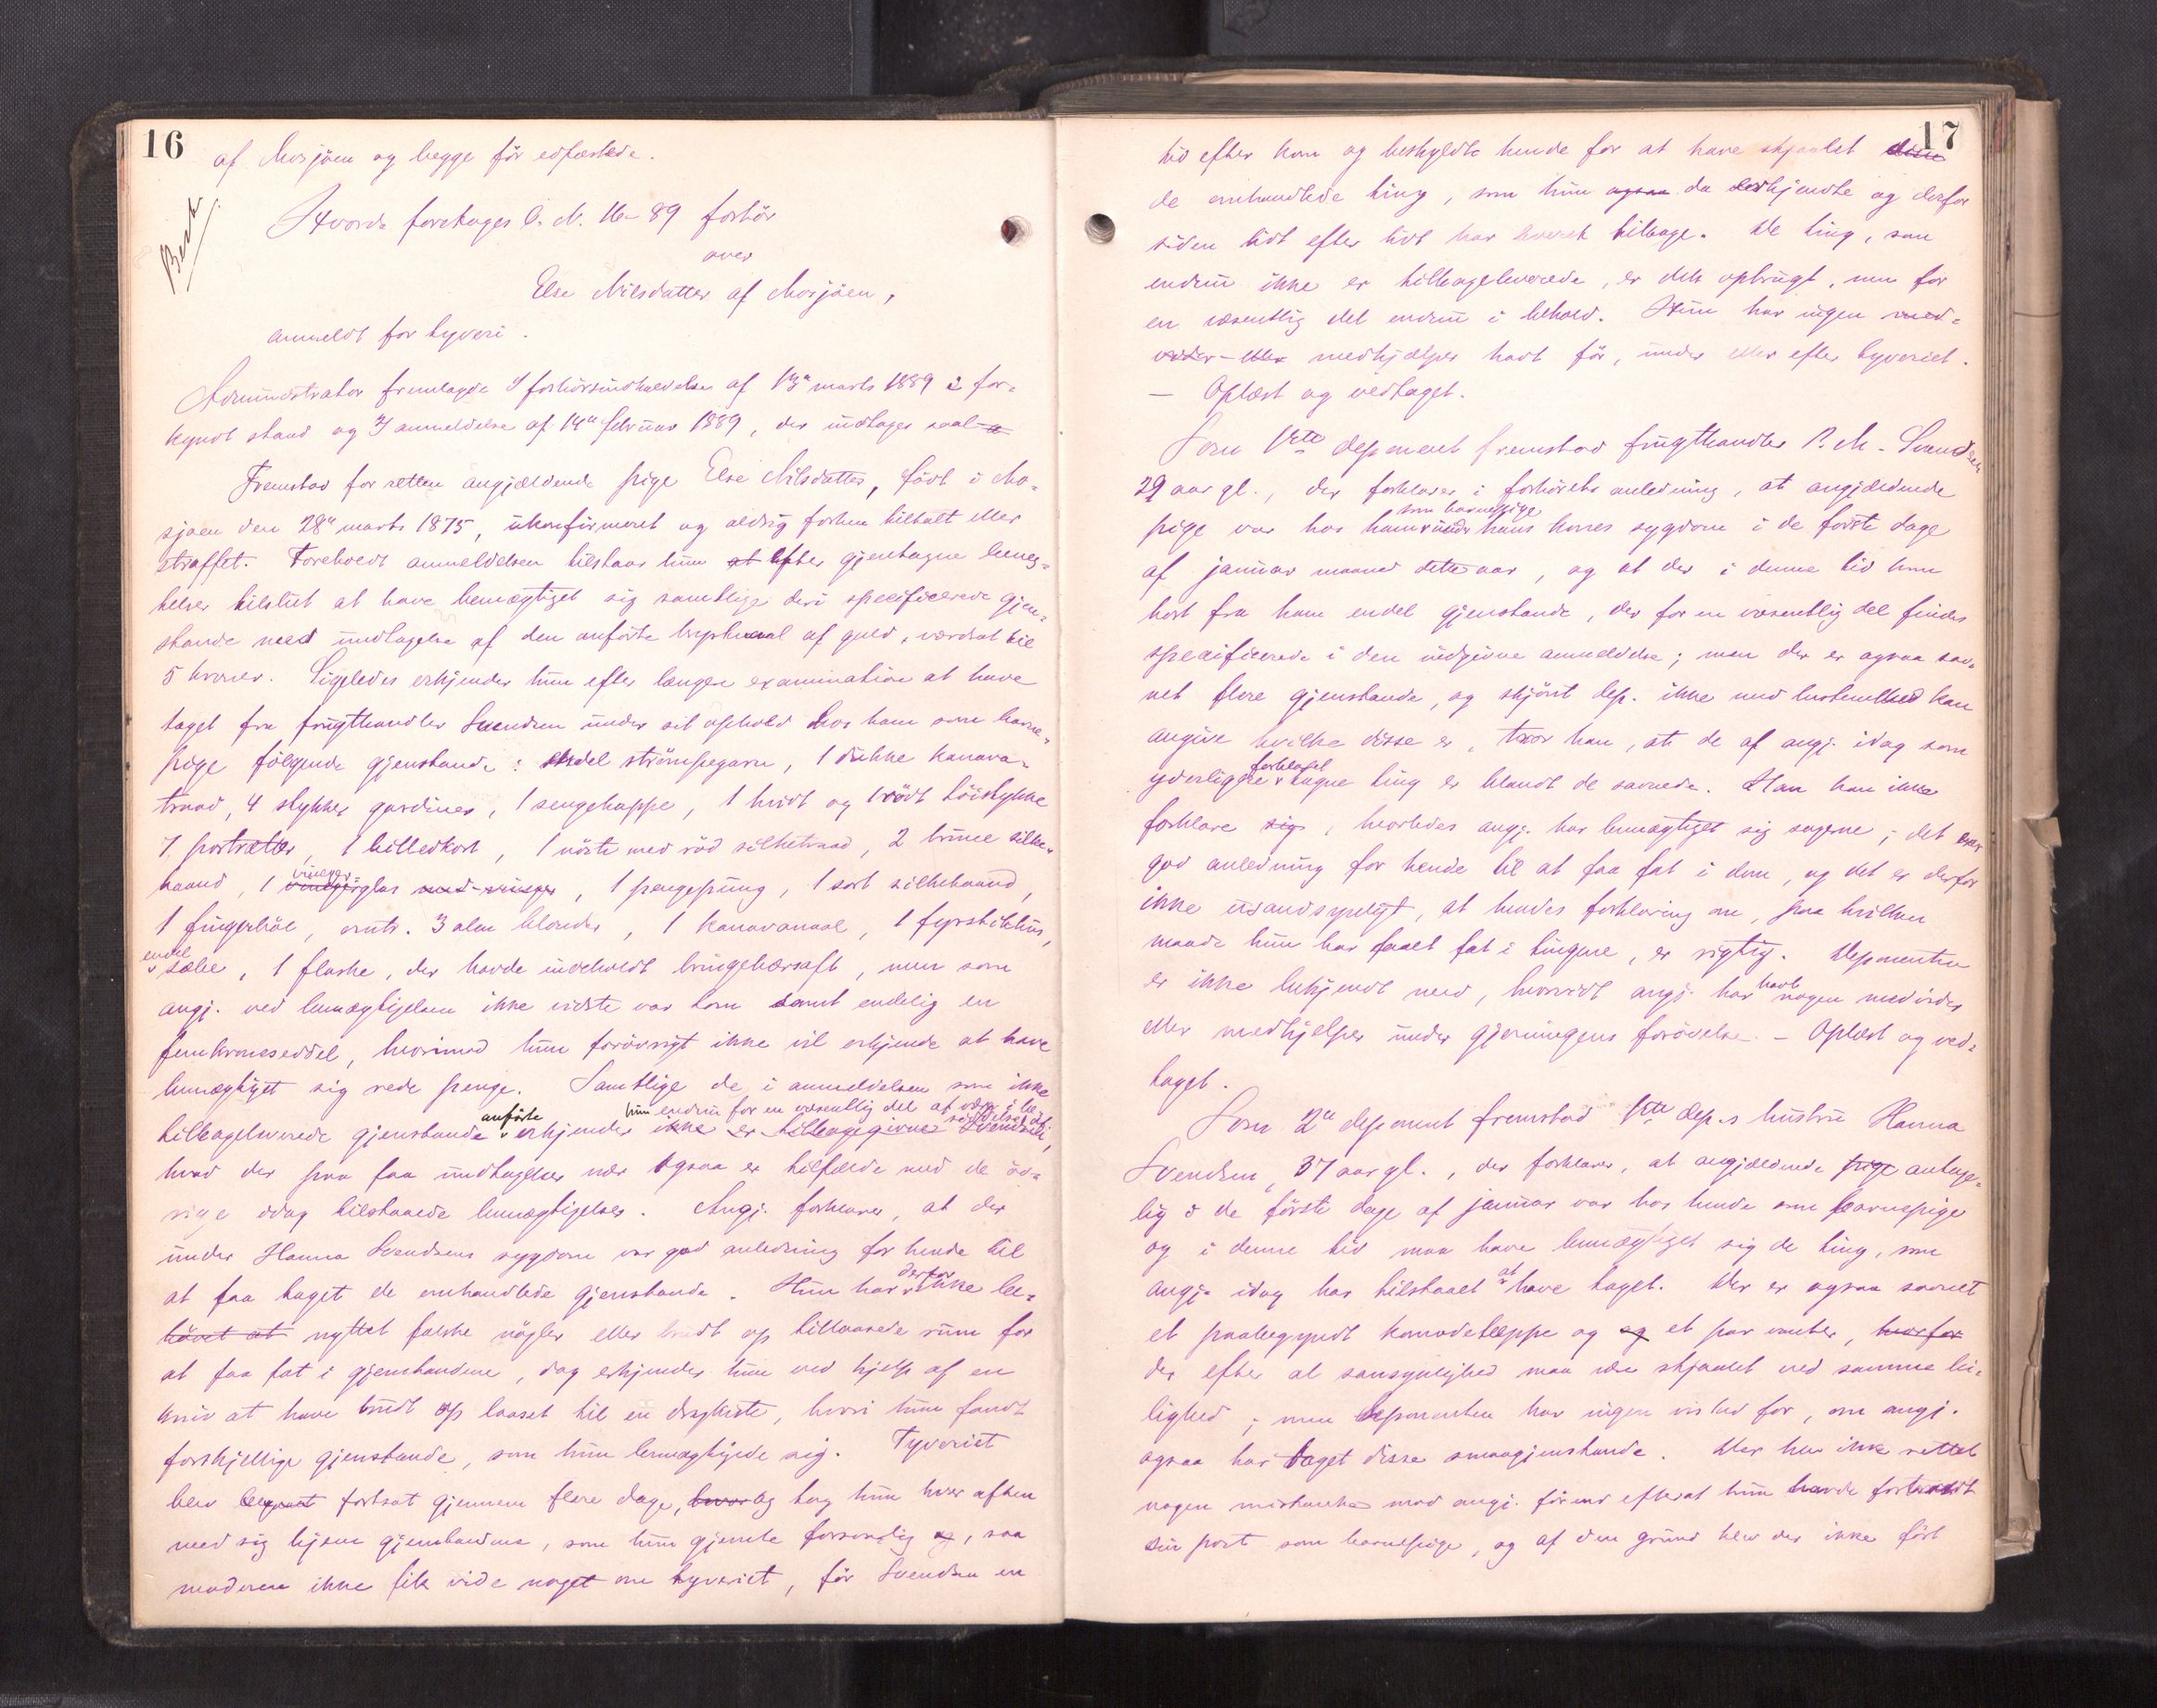 16
af Mosjöen og begge för edfæstede.
Best.
Hvorda foretages O. N. 16-89 forhör
over
Else Nilsdatter af Mosjöen,
anmeldt for tyveri.
Administrator fremlagde forhörsindkaldelse af 13de marts 1889 i for-
kyndt stand og anmeldelse af 14de februar 1889, der indtages
Fremstod for retten angjældende pige Else Nilsdatter, födt i Mo-
sjöen den 28de marts 1875, ukonfirmeret og aldrig forhen tiltalt eller
straffet. Foreholdt anmeldelsen tilstaar hun at efter gjentagne beneg-
telser tilslut at have bemægtiget sig samtlige deri specificerede gjen-
stande med undtagelse af den anförte af guld, værdsat til
5 kroner. Ligeledes erkjender hun efter længere examination at have
taget fra frugthandler Svendsen under sit ophold hos ham som barne-
pige fölgende gjenstande: endel strömpegarn, 1 dukke kanava-
traad, 4 stykker gardiner, 1 sengekappe, 1 hvidt og rödt töistykke
7 portrætter, 1 billedkort, 1 nöste med röd silketraad, 2 brune silke-
baand, 1 vinger glas med vinger, 1 pengepung, 1 sort silkebaand,
1 fingerböl, omtr. 3 alen blonder, 1 kanavanaal, 1 fyrstikhus,
endel sæbe, 1 flaske, der havde indeholdt bringebærsaft, men som
angj. ved bemægtigelsen ikke vidste var tom samt endelig en
femkroneseddel, hvorimod hun forövrigt ikke vil erkjende at have
bemægtiget sig rede penge. Samtlige de i anmeldelsen som ikke
hun endnu for en væsentlig del at være i be-
tilbageleverede gjenstande anförte erkjender ikke er tilbagegivne Svendsen,
hvad der paa faa undtagelser nær ogsaa er tilfælde med de öv-
rige idag tilstaaede bemægtigelser. Angj. forklarer, at der
under Hanna Svendsens sygdom var god anledning for hende til
at faa taget de omhandlede gjenstande. Hun har derfor ikke be-
hövet at nyttet falske nögler eller brudt op tillaasede rum for
at faa fat i gjenstandene, dog erkjender hun ved hjelp af en
kniv at have brudt op laaset til en dragkiste, hvori hun fandt
forskjellige gjenstande, som hun bemægtigede sig. Tyveriet
blev fortsat gjennem flere dage, hvor og tog hun hver aften
med sig hjem gjenstandene, som hun gjemte forsonlig og, saa
moderen ikke fik vide noget om tyveriet, för Svendsen en
17
tid efter kom og beskyldte hende for at have stjaalet disse
de omhandlede ting, som hun ogsaa da erkjendte og derfor
siden lidt efter lidt har leveret tilbage. De ting, som
endnu ikke er tilbageleverede, er dels opbrugt, men for
en væsentlig del endnu i behold. Hun har ingen med-
vider eller medhjælper havt för, under eller efter tyveriet.
— Oplæst og vedtaget.
Som 1ste deponent fremstod frugthandler P. M. Svendsen
29 aar gl., der forklarer i forhörets anledning, at angjældende
som barnepige
pige var hos ham under hans kones sygdom i de første dage
af januar maaned dette aar, og at der i denne tid kom
bort fra ham endel gjenstande, der for en væsentlig del findes
specificerede i den indgivne anmeldelse; men der er ogsaa sav-
net flere gjenstande, og skjönt dep. ikke med bestemthed kan
angive hvilke disse er, tror han, at de af angj. idag som
yderligere forklaret tagne ting er blandt de savnede. Han kan ikke
forklare sig, hvorledes angj. har bemægtiget sig sagerne; det var
god anledning for hende til at faa fat i dem, og det er derfor
ikke usandsynligt, at hendes forklaring om, paa hvilken
maade hun har faaet fat i tingene, er rigtig. Deponenten
er ikke bekjendt med, hvorvidt angj. har havt nogen medvider
eller medhjelper under gjerningens forövelse. – Oplæst og ved-
taget.
Som 2den deponent fremstod 1ste dep.s hustru Hanna
Svendsen, 37 aar gl., der forklarer, at angjældende pige antage-
lig i de første dage af januar var hos hende som barnepige
og i denne tid maa have bemægtiget sig de ting, som
angj. idag har tilstaaet at have taget. Der er ogsaa savnet
et paabegyndt komodeteppe og og et par vanter, hvorfor
der efter al sansynlighed maa være stjaalet ved samme lei-
lighed; men deponenten har ingen vished for, om angj.
ogsaa har taget disse smaagjenstande. Der blev ikke rettet
nogen mistanke mod angj. förend efterat hun havde fortrædt
sin post som barnepige, og af den grund blev der ikke fört